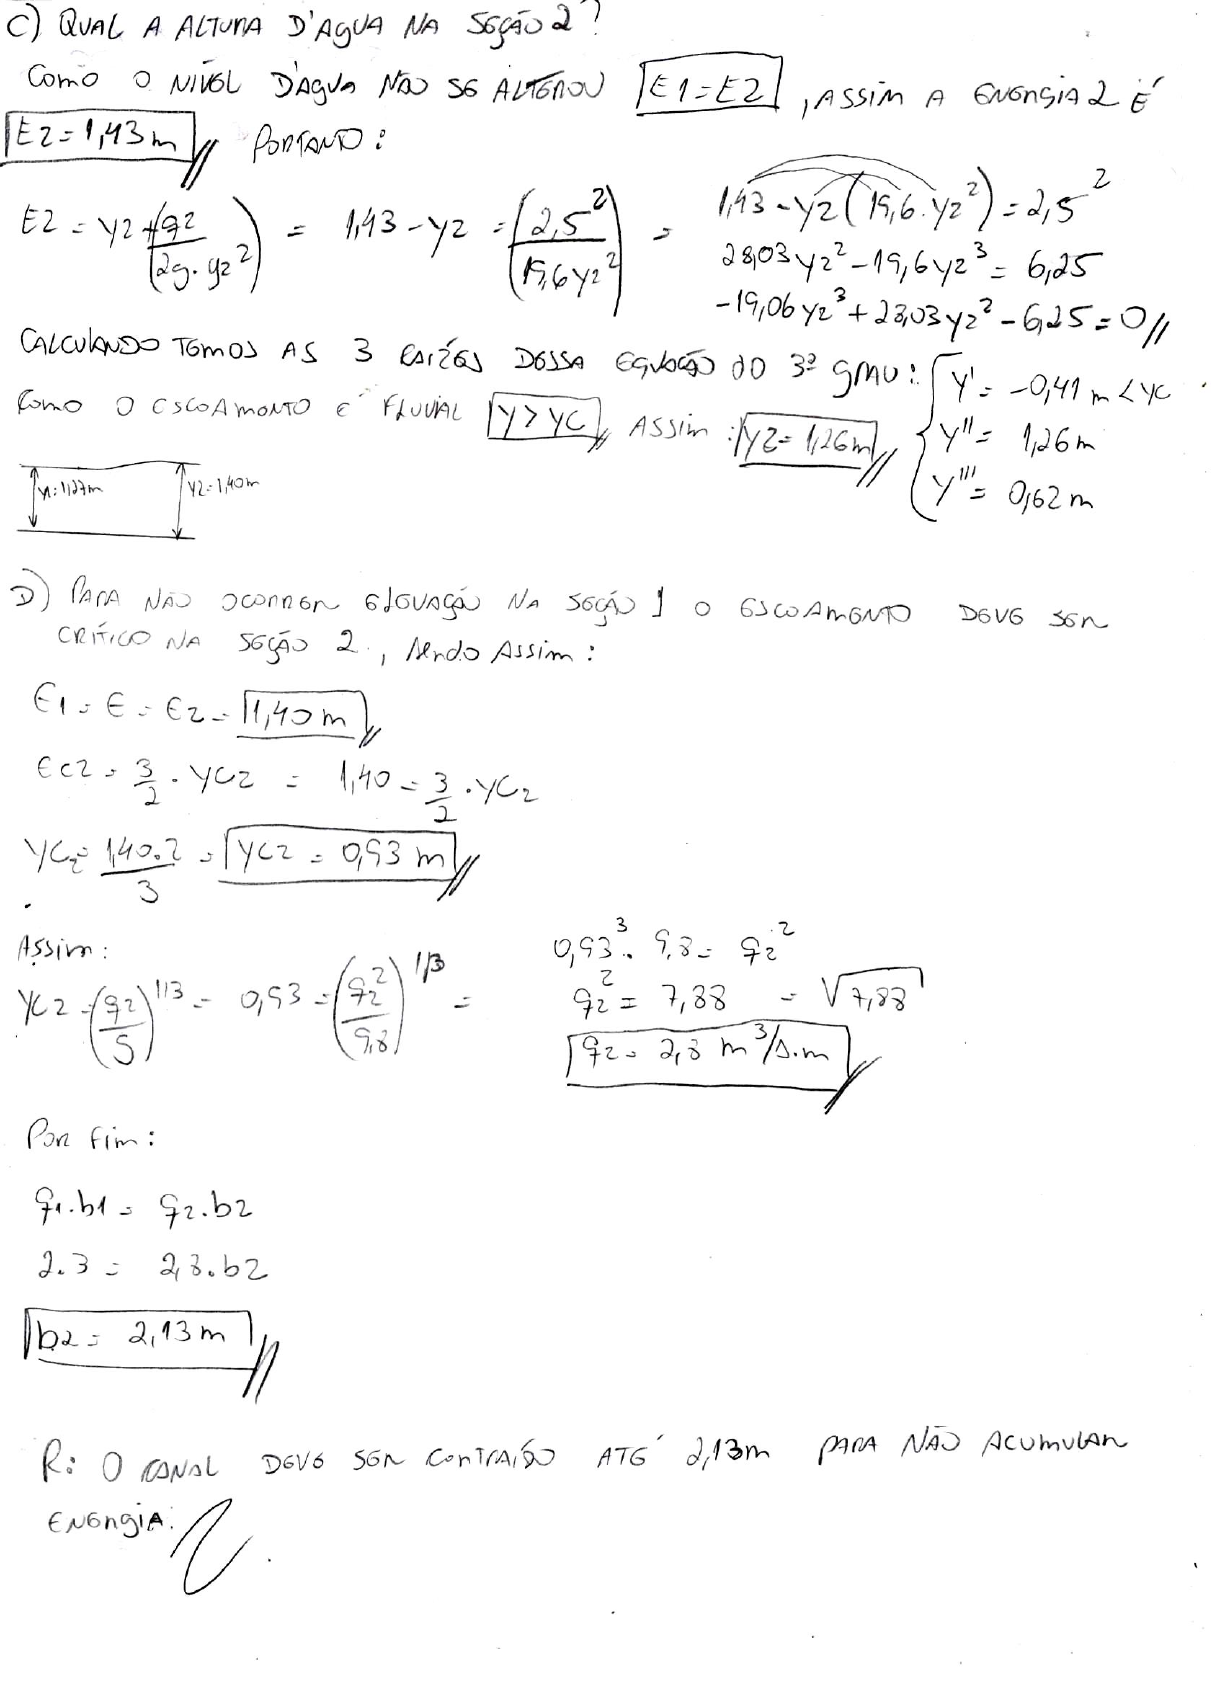 C) QUAL A ALTURA D'AGUA NA SEÇÃO 2?
COMO O NIVEL D'AGUA NÃO SE ALTEROU E1=E2, ASSIM A ENERGIA 2 É
E2=1,43m // PORTANTO:
E2 = y2 + (q2 / (2g. y2²)) = 1,43 - y2 = (2,5² / (19,6 y2²)) = 1,43 - y2 (19,6. y2²) = 2,5²
28,03 y2² - 19,6 y2³ = 6,25
-19,06 y2³ + 28,03 y2² - 6,25 = 0 //
CALCULANDO TEMOS AS 3 RAIZES DESSA EQUAÇÃO DO 3º GRAU: { y' = -0,41 m < yc
COMO O ESCOAMENTO É FLUVIAL y > yc // ASSIM: y2 = 1,26m // y'' = 1,26m
y''' = 0,62 m
y2=1,40m
D) PARA NÃO OCORRER ELEVAÇÃO NA SEÇÃO 1 O ESCOAMENTO DEVE SER
CRÍTICO NA SEÇÃO 2, sendo ASSIM:
E1 = E = E2 = 1,40 m //
Ec2 = 3/2 . yc2 = 1,40 = 3/2 . yc2
yc2 = 1,40.2 / 3 = yc2 = 0,93 m //
ASSIM:
yc2 = (q2 / g)^1/3 = 0,93 = (q2² / 9,8)^1/3 =
0,93³ . 9,8 = q2²
q2² = 7,88 = √7,88
q2 = 2,8 m³/s.m //
POR FIM:
q1.b1 = q2.b2
2.3 = 2,8.b2
b2 = 2,13m //
R: O CANAL DEVE SER CONTRAÍDO ATÉ 2,13m PARA NÃO ACUMULAR
ENERGIA.